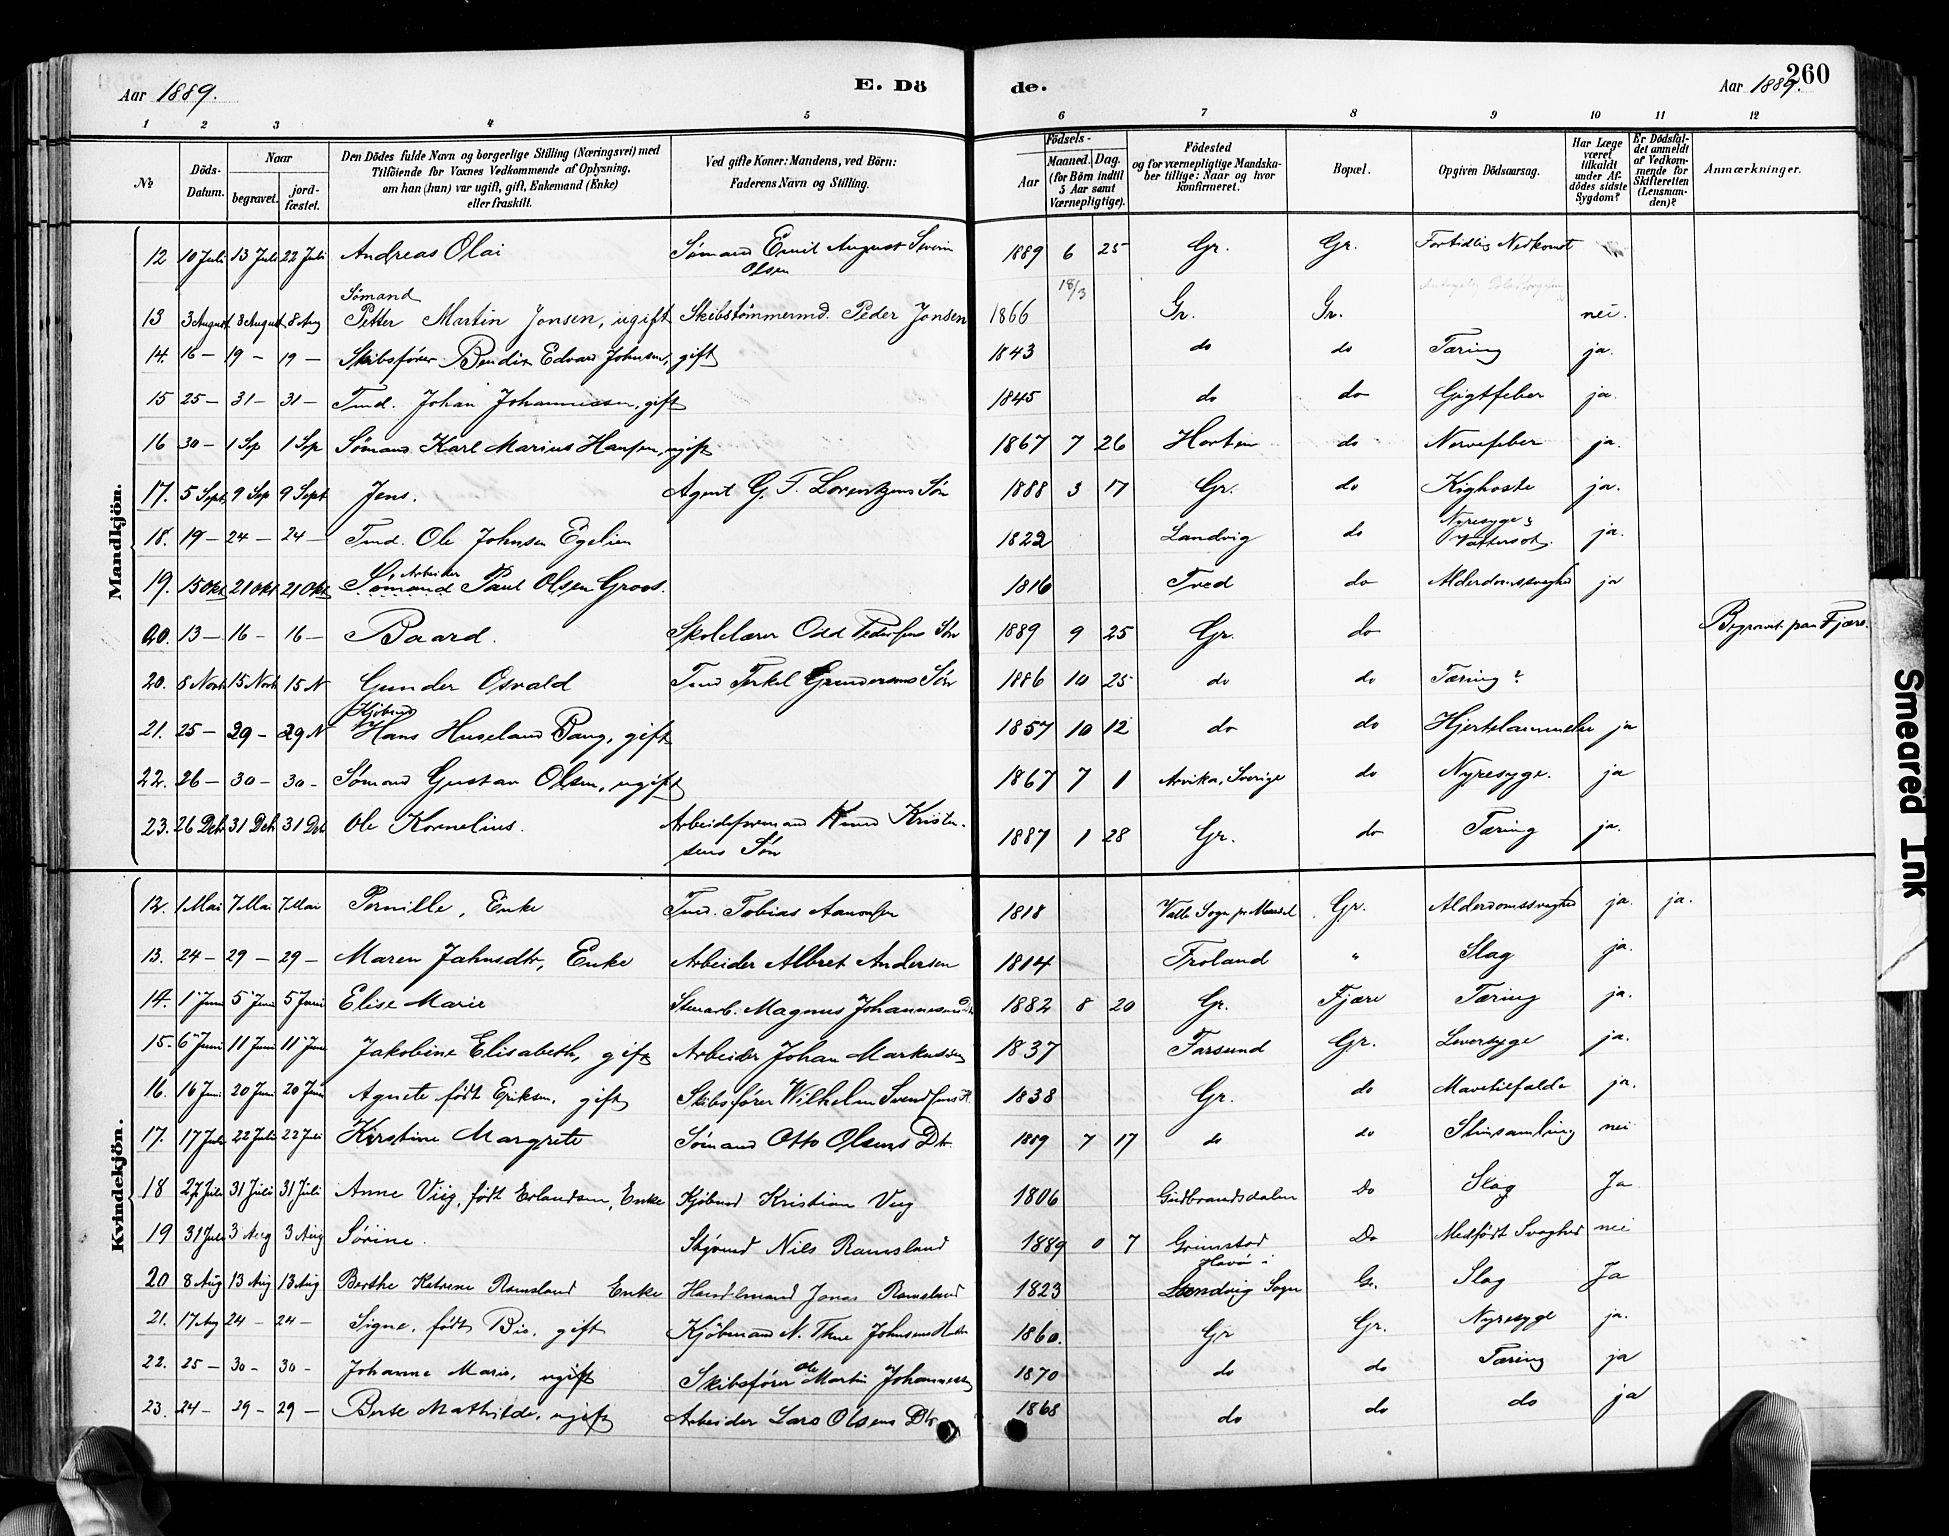 Aar 1889.
E. Dö
de.
Aar 1889.
260
1 2 3 4 5 6 7 8 9 10 11 12
№
Döds-Datum.
Naar
begravet.
jord-fæstet.
Den Dödes fulde Navn og borgerlige Stilling (Næringsvei) med
Tilföiende for Voxnes Vedkommende af Oplysning,
om han (hun) var ugift, gift, Enkemand (Enke)
eller fraskilt.
Ved gifte Koner: Mandens, ved Börn:
Faderens Navn og Stilling.
Födsels-
Aar
Maaned. Dag.
(for Börn indtil
5 Aar samt
Værnepligtige).
Födested
og for værnepligtige Mandska-
ber tillige: Naar og hvor
konfirmeret.
Bopæl.
Opgiven Dödsaarsag.
Har Læge
været
tilkaldt
under Af-
dödes sidste
Sygdom?
Er Dödsfal-
det anmeldt
af Vedkom-
mende for
Skifteretten
(Lensman-
den)?
Anmærkninger.
Mandkjön.
12 10 Juli 13 Juli 22 Juli Andreas Olai Sømand Emil August Severin Olsen 1889 6 25 Gr. Gr. Fortidlig Nedkomst
13 3 August 8 August 8 Aug Sømand Petter Martin Jonsen, ugift Skibstømmermd. Peder Jonsen 1866 18/3 Gr. Gr. nei.
14. 16 – 19 – 19 – Skibsfører Bendix Edvard Johnsen, gift 1843 do do Tæring ja.
15 25 – 31 – 31 – Tmd. Johan Johannessen, gift 1845 do do Gigtfeber ja.
16 30 – 1 Sp 1 Sp Sømand Karl Marius Hansen, ugift 1867 7 26 Horten do Nervefeber ja.
17. 5 Sept. 9 Sep 9 Sept Jens. Agent G. T. Lorentzens Søn 1888 3 17 Gr. do Kighoste ja.
18. 19 – 24 – 24 – Tmd. Ole Johnsen Egelien 1822 Landvig do Nyresyge & Vattersot. ja.
19. 15 Okt 21 Okt 21 Okt Sømand Arbeider Paul Olsen Groos. 1816 Tved do Alderdomssvaghed ja
20. 13 – 16 – 16 – Baard. Skolelærer Odd Pedersens Søn 1889 9 25 Gr. do Begravet paa Fjære.
20. 8 Novb 15 Novb 15 N Gunder Osvald Tmd Terkel Gundersens Søn 1886 10 25 do do Tæring?
21. 25 – 29 – 29 N Kjøbmd Hans Huseland Bang, gift 1857 10 12 do do Hjertelammelse ja
22. 26 – 30 – 30 – Sømand Gustav Olsen, ugift 1867 7 1 Arvika, Sverige do Nyresyge. ja
23. 26 Dcb 31 Dcb 31 Dcb Ole Kornelius. Arbeidsformand Knud Kristen-
sens Søn 1887 1 28 Gr. do Tæring ja.
Kvindekjön.
12. 1 Mai 7 Mai 7 Mai Pernille, Enke Tmd. Tobias Aanonsen 1818 Valle Sogn pr Mandal Gr. Alderdomssvaghed ja. ja.
13. 24 – 29 – 29 – Maren Jahnsdtr, Enke Arbeider Albret Andersen 1814 Froland " Slag ja.
14. 1 Juni 5 Juni 5 Juni Elise Marie Stenarb. Magnus Johannesens Dtr 1882 8 20 Gr. Fjære Tæring ja.
15. 6 Juni 11 Juni 11 Juni Jakobine Elisabeth, gift Arbeider Johan Markussen 1837 Farsund Gr. Leversyge ja.
16. 16 Juni 20 Juni 20 Juni Agnete, født Eriksen, gift Skibsfører Wilhelm Svendsens H. 1838 Gr. do Mavetilfælde ja.
17. 17 Juli 22 Juli 22 Juli Kirstine Margrete Sømand Otto Olsens Dtr. 1889 7 17 do do Slimsamling nei
18 27 Juli 31 Juli 31 Juli Anne Viig, født Erlandsen, Enke Kjøbmd Kristian Viig 1806 Gudbrandsdalen Do Slag Ja
19 31 Juli 3 Aug 3 Aug Sørine. Nils Ramsland 1889 0 7 Grimstad Do Medfødt Svaghed nei
20 8 Aug 13 Aug 13 Aug Berthe Katrine Ramsland Enke Handelsmand Jonas Ramsland 1823 Havø i Landvig Sogn Gr. Slag Ja
21. 17 Aug 24 – 24 – Signe, født Bie, gift Kjøbmand N. Thue Johnsens 1860. Gr Gr. Nyresyge ja.
22. 25 – 30 – 30 – Johanne Marie, ugift Skibsfører Ole Martin Johannessen 1870 do do Tæring ja
23. 24 – 29 – 29 – Berte Mathilde, ugift Arbeider Lars Olsens Dtr. 1868 do do do ja
Smeared Ink